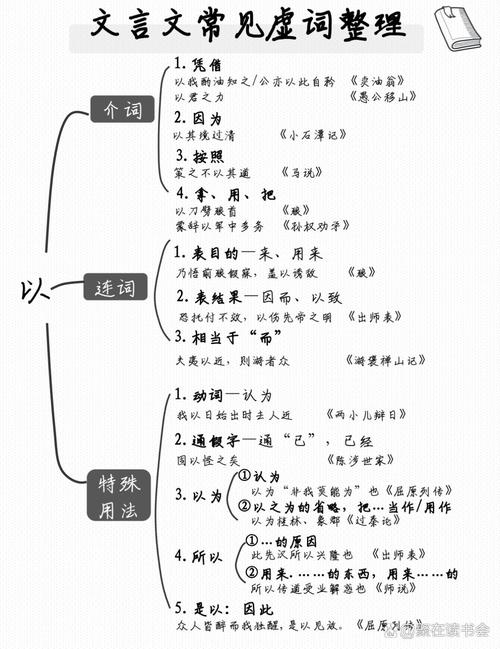 文言文常见虚词整理
以
介词
1. 凭借
以我酌油知之/公亦以此自矜 《卖油翁》
以君之力 《愚公移山》
2. 因为
以其境过清 《小石潭记》
3. 按照
策之不以其道 《马说》
4. 拿、用、把
以刀劈狼首 《狼》
蒙辞以军中多务 《孙权劝学》
连词
1. 表目的—来、用来
乃悟前狼假寐，盖以诱敌 《狼》
2. 表结果—因而、以致
恐托付不效，以伤先帝之明 《出师表》
3. 相当于“而”
夫夷以近，则游者众 《游褒禅山记》
特殊用法
1. 动词—认为
我以日始出时去人近 《两小儿辩日》
2. 通假字—通“已”，已经
固以怪之矣 《陈涉世家》
3. 以为
①认为
以为“非我莫能为”也《屈原列传》
②以之为的省略，把…当作/用作
以为桂林、象郡《过秦论》
4. 所以
①…的原因
此先汉所以兴隆也 《出师表》
②用来……的东西，用来…的
所以传道受业解惑也 《师说》
5. 是以：因此
众人皆醉而我独醒，是以见放。《屈原列传》
@聚在读书会